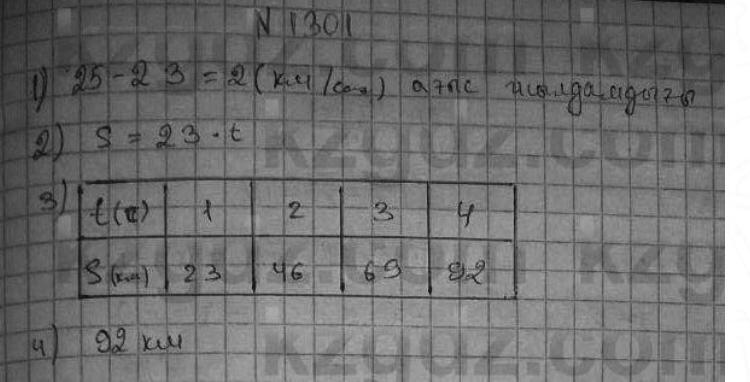 N 1301
1) 25 - 23 = 2 (км/сағ) ағыс жылдамдығы
2) S = 23 · t
3) t(с) 1 2 3 4
S(км) 23 46 69 92
4) 92 км
kzguz.com